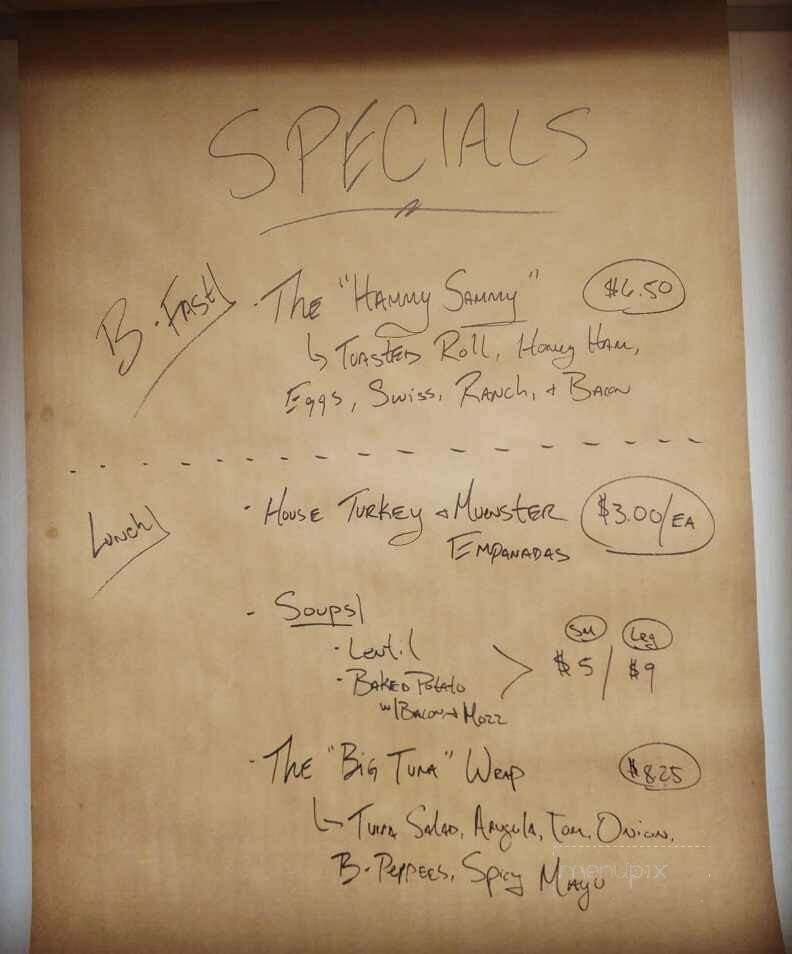 SPECIALS
B·FAST
· THE "HAMMY SAMMY" $6.50
↳ TOASTED ROLL, HONEY HAM,
EGGS, SWISS, RANCH, + BACON
LUNCH
· HOUSE TURKEY + MUENSTER $3.00/EA
EMPANADAS
- SOUPS
SM Leg
· Lentil
$5/$9
· BAKED POTATO
w/BACON + MOZZ
· THE "BIG TUNA" WRAP $8.25
↳ TUNA SALAD, ARUGULA, TOM, ONION,
B·PEPPERS, SPICY MAYO
menupix